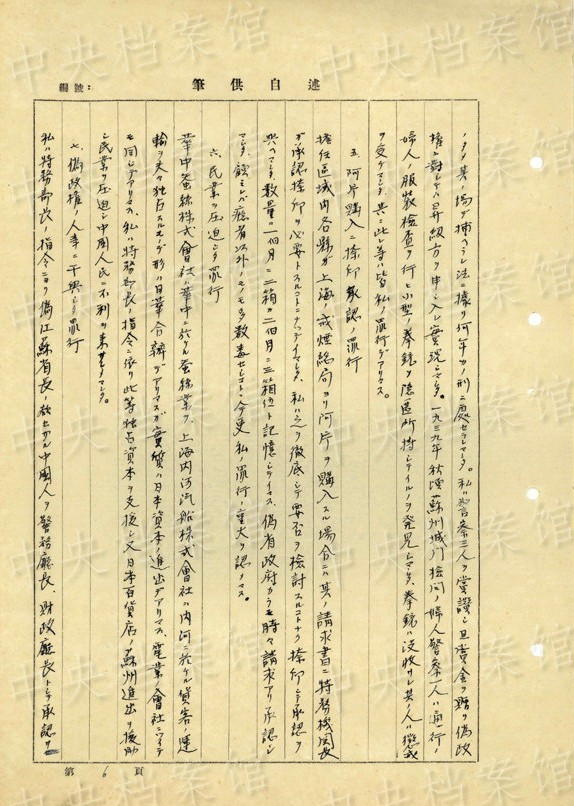 中央档案馆
編號:
筆供自述
ノタメ其ノ場デ捕ヘラレ法ニ據リ何年カノ刑ニ處セラレマシタ。私ハ警察三人ヲ賞讃シ且賞金ヲ贈リ偽政
権ニ対シテハ昇級方ヲ申シ入レ実現シマシタ。一九三九年秋頃蘇州城門検問ノ婦人警察一人ハ通行ノ
婦人ノ服装検査ヲ行ヒ小型ノ拳銃ヲ隠匿所持シテイルノヲ発見シマシタ、拳銃ハ没収サレ其ノ人ハ懲戒
ヲ受ケマシタ。其ニ此レ等ハ皆私ノ罪行デアリマス。
五、阿片購入ニ捺印承認ノ罪行
擔任区域内各縣ガ上海ノ戒煙総局カリ阿片ヲ購入スル場合ニハ其ノ請求書ニ特務機関長
ガ承認捺印ヲ必要トスルコトニナッテイマシタ、私ハ之ヲ徹底シテ要否ヲ検討スルコトナク捺印シ承認ヲ
與ヘマシタ、数量ハ一個月ニ二箱カ二個月ニ三箱位ト記憶シテイマス、偽省政府カラモ時々請求アリ承認シ
マシタ、蝕ミシガ癮者以外ノモノモ多数毒セレコト今更私ノ罪行ノ重大ヲ認メマス。
六、民業ヲ圧迫シタ罪行
華中蚕絲株式會社ハ華中ニ於ケル蚕絲業ヲ、上海内河汽船株式會社ハ内河ニ於ケル貨客ノ運
輸ヲ夫々独占スルモノデ形ハ日華合辦デアリマスガ実質ハ日本資本ノ進出デアリマス、電業ノ會社ニツイテ
モ同シデアリマス、私ハ特務部長ノ指令ニ依リ此等独占資本ヲ支援シ又日本百貨店ノ蘇州進出ヲ援助
シ民業ヲ圧迫シ中國人民ニ不利ヲ来サセマシタ。
七、偽政権ノ人事ニ干與シタ罪行
私ハ特務部長ノ指令ニヨリ偽江蘇省長ノ中國人ヲ警務廳長、財政廳長トシテ承認ヲ
第 6 頁